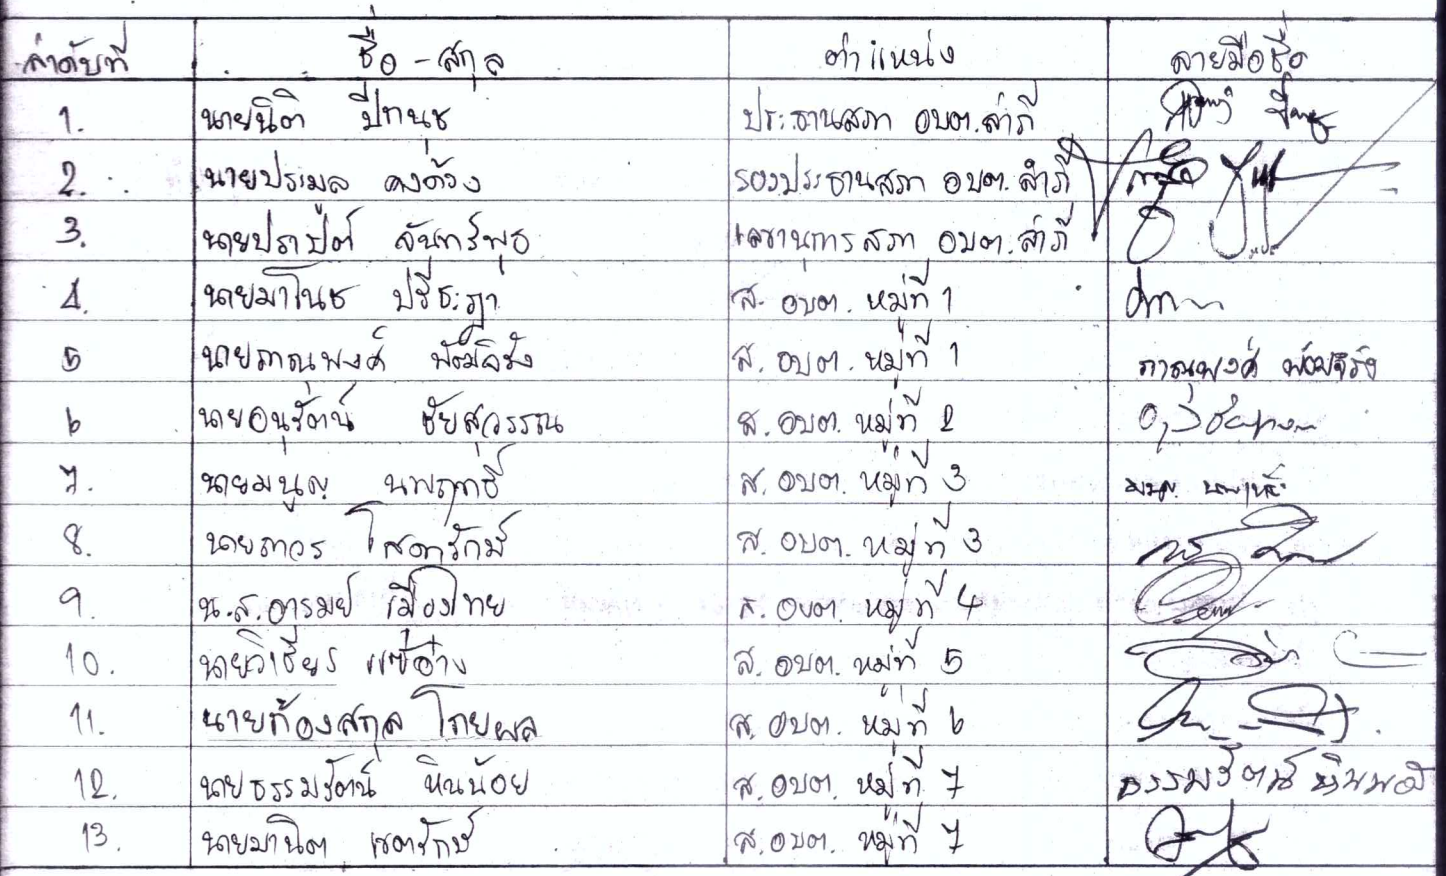 ลำดับที่ ชื่อ - สกุล ตำแหน่ง ลายมือชื่อ
1. นายนิติ ปีทานุช ประธานสภา อบต.สำภี
2. นายประมูล คงด้วง รองประธานสภา อบต.สำภี
3. นายปราโมต์ จันทร์พุธ เลขานุการสภา อบต.สำภี
4. นายมาโนช ปรีชะฎา ส. อบต. หมู่ที่ 1
5 นายภาณุพงศ์ พัฒจิรัง ส. อบต. หมู่ที่ 1 ภาณุพงศ์ พัฒจิรัง
6 นายอนุรัตน์ ชัยสุวรรณ ส. อบต. หมู่ที่ 2
7. นายมนูญ นพฤทธิ์ ส. อบต. หมู่ที่ 3 มนูญ
8. นายถาวร โสดารักษ์ ส. อบต. หมู่ที่ 3
9. น.ส.อารมย์ เมืองไทย ส. อบต. หมู่ที่ 4
10. นายวิเชียร แซ่อ๋าง ส. อบต. หมู่ที่ 5
11. นายก้องสกุล โภยผล ส. อบต. หมู่ที่ 6
12. นายธรรมรัตน์ หินน้อย ส. อบต. หมู่ที่ 7 ธรรมรัตน์
13. นายมานิต เขตรักษ์ ส. อบต. หมู่ที่ 7